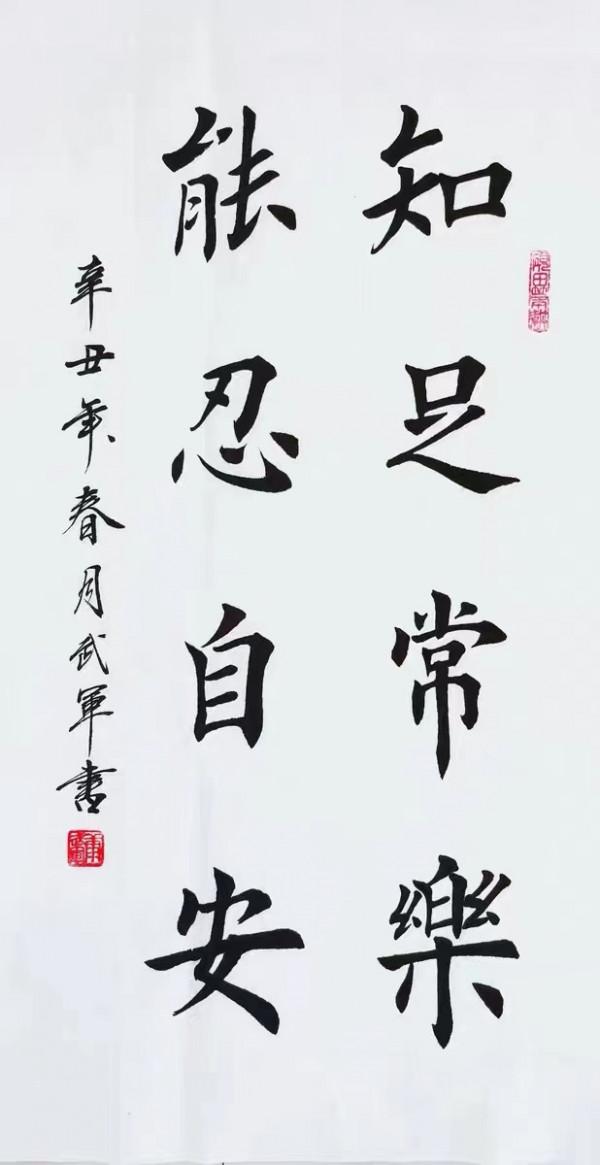 知足常樂
能忍自安
辛丑年春月武軍書